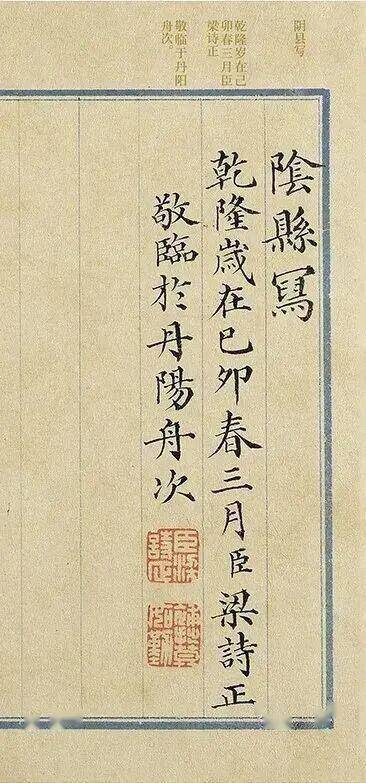 阴县写
乾隆岁在己
卯春三月臣
梁诗正
敬临于丹阳
舟次
陰縣冩
乾隆歲在己卯春三月臣梁詩正
敬臨於丹陽舟次
臣梁詩正